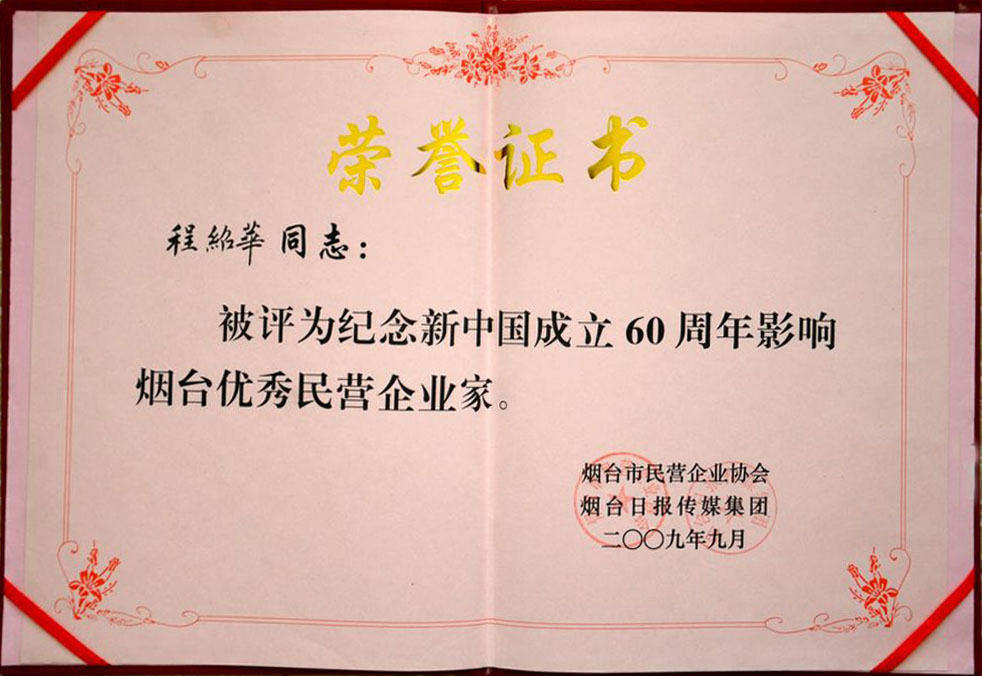 荣誉证书
程紹華同志：
被评为纪念新中国成立60周年影响
烟台优秀民营企业家。
烟台市民营企业协会
烟台日报传媒集团
二〇〇九年九月